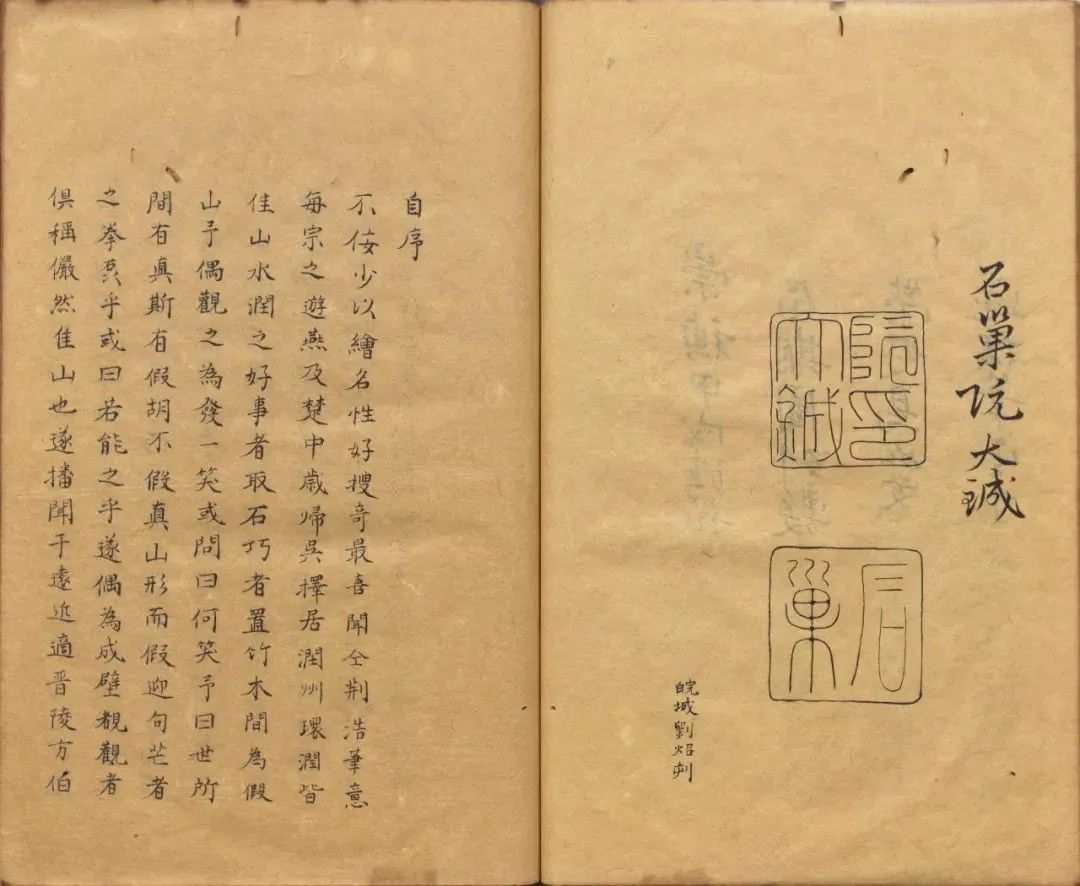 石巢阮大鋮
阮印
大鋮
石巢
皖城劉炤刻
自序
不佞少以繪名性好搜奇最喜聞仝荊浩筆意
每宗之遊燕及楚中歲歸吳擇居潤州環潤皆
佳山水潤之好事者取石巧者置竹木間為假
山予偶觀之為發一笑或問曰何笑予曰世所
間有真斯有假胡不假真山形而假迎句芒者
之拳磊乎或曰若能之乎遂偶為成壁覩觀者
俱稱儼然佳山也遂播聞于遠近適晉陵方伯